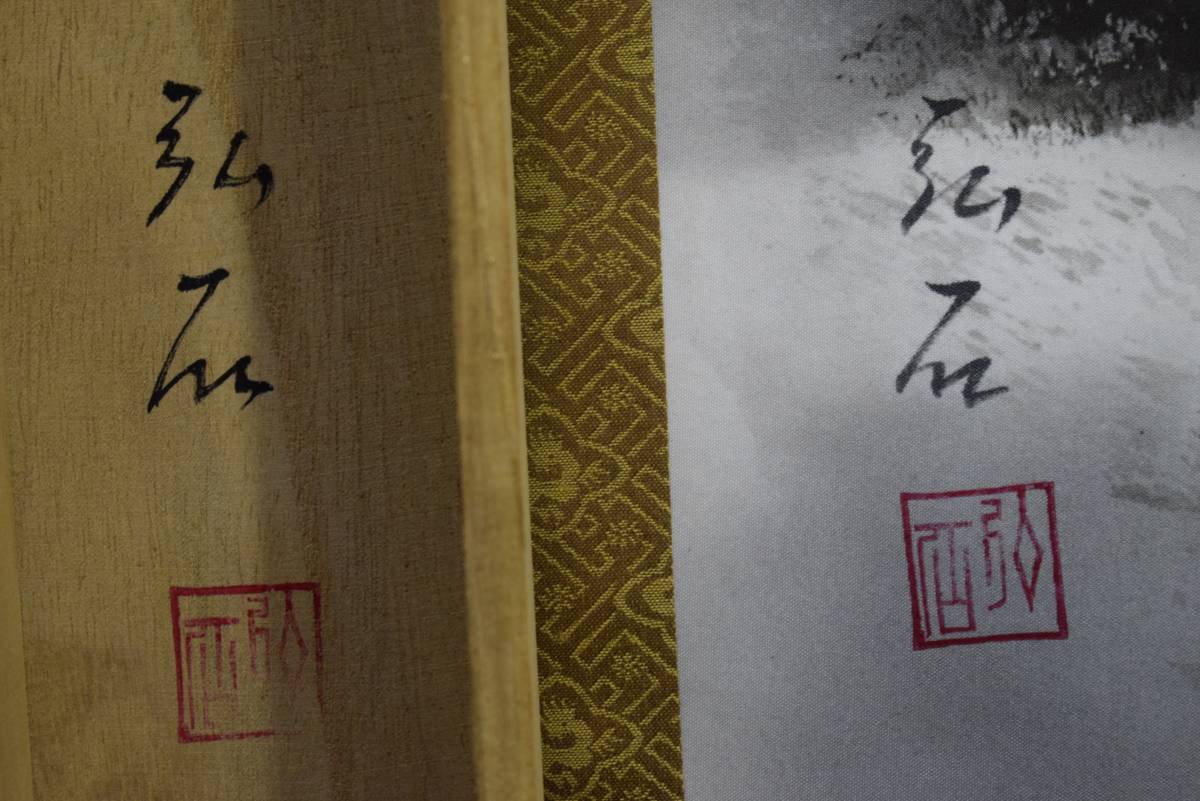 弘石
弘石
弘石
弘石